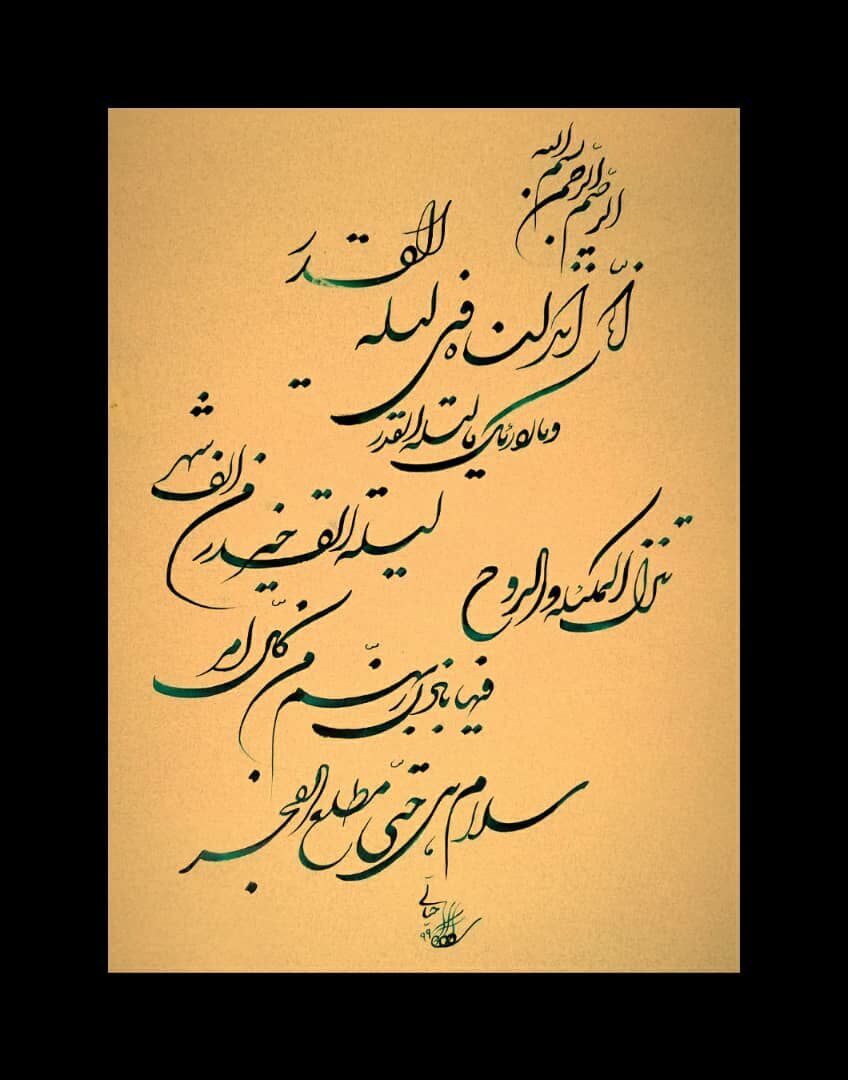 بسم الله
الرحمن
الرحیم
انّا انزلناه فی لیله القدر
وما ادرئک ما لیله القدر
لیله القدر خیر من الف شهر
تنزل الملئکه والروح
فیها باذن ربهّم من کلّ امر
سلام هی حتّی مطلع الفجر
۹۹